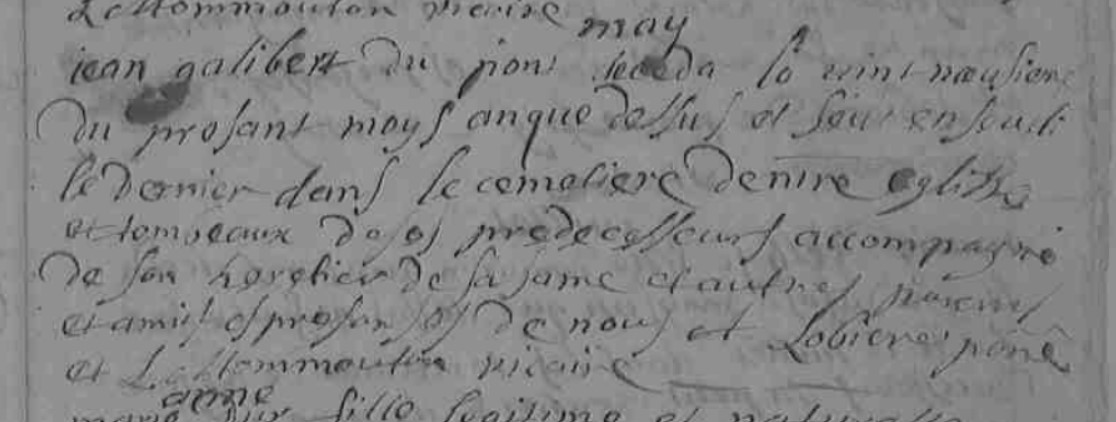 vicaire
may
jean galibert du pont deceda lo vint nœusieme
du prosant moys an que dessus et feut enseveli
le dernier dans le cemetiere de ntre eglise
et tombeaux de ses predecesseurs accompagné
de son heretier de sa fame et autres parens
et amis es presences de nous et
et vicaire
anne
marie fille legitime et naturelle